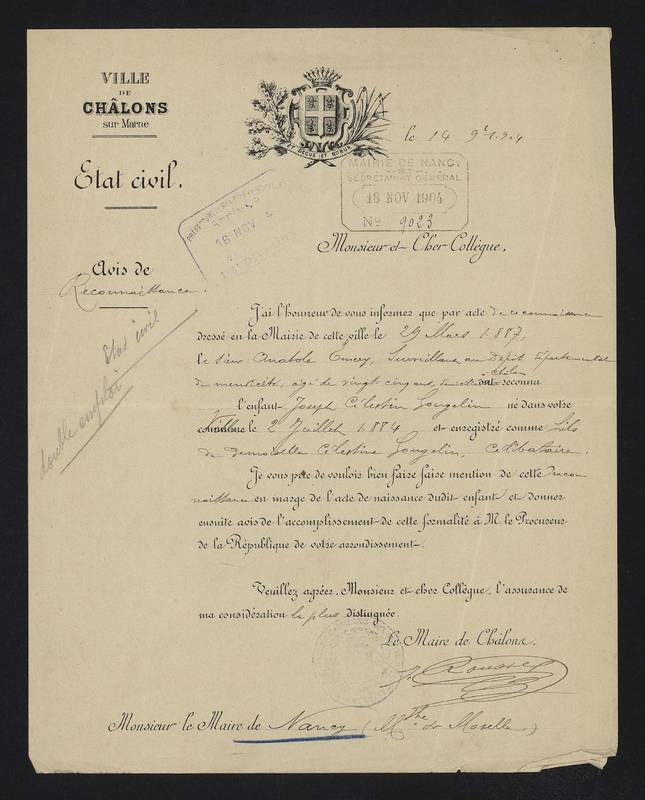 VILLE
DE
CHÂLONS
sur Marne
Etat civil.
ET DECUS ET ROBUR
le 14 9e 1904
MAIRIE DE NANCY
SECRÉTARIAT GÉNÉRAL
18 NOV 1904
No 9023
16 NOV
Monsieur et Cher Collègue,
Avis de
Reconnaissance.
Etat civil
double emploi
J'ai l'honneur de vous informer que par acte de reconnaissance
dressé en la Mairie de cette ville le 29 Mars 1887,
le sieur Anatole Emery, Surveillant au Dépôt départemental
de mendicité, âgé de vingt cinq ans, domicilié à Châlons reconnu
l'enfant Joseph Célestin Gougelin né dans votre
Ville le 2 Juillet 1884 et enregistré comme fils
de demoiselle Célestine Gougelin, célibataire.
Je vous prie de vouloir bien faire faire mention de cette recon
naissance en marge de l'acte de naissance dudit enfant et donner
ensuite avis de l'accomplissement de cette formalité à M. le Procureur
de la République de votre arrondissement.
Veuillez agréer, Monsieur et cher Collègue, l'assurance de
ma considération la plus distinguée.
Le Maire de Châlons,
Monsieur le Maire de Nancy (Mthe et Moselle)